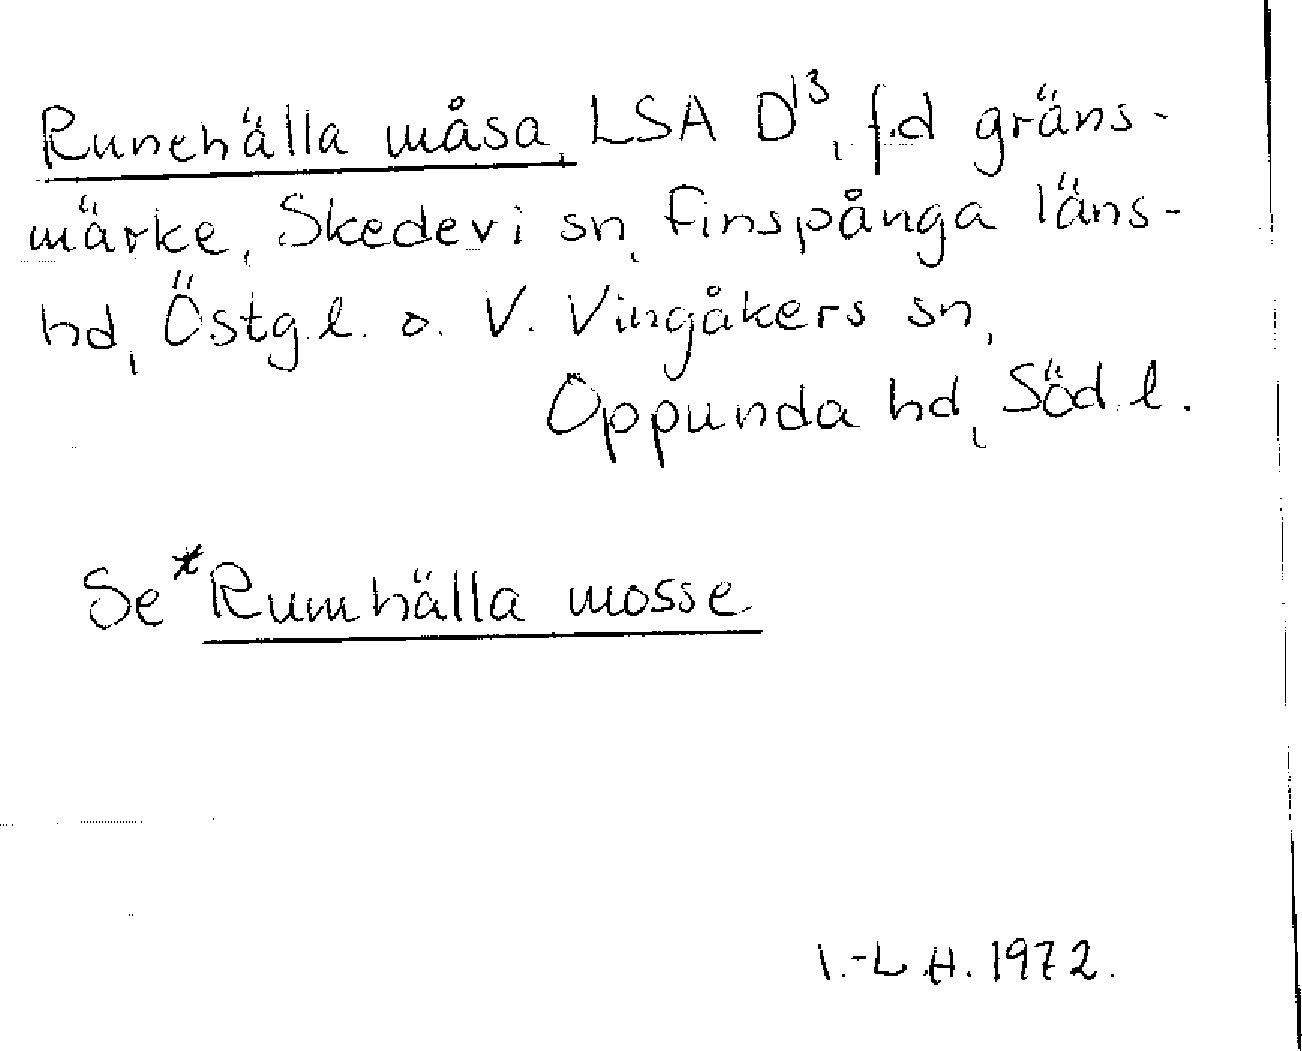 Runehälla måsa, LSA D13, f.d gräns-
märke, Skedevi sn, Finspånga läns-
hd, Östg.l. o. V. Vingåkers sn,
Oppunda hd, Söd.l.
Se *Rumhälla mosse
I.-L H. 1972.